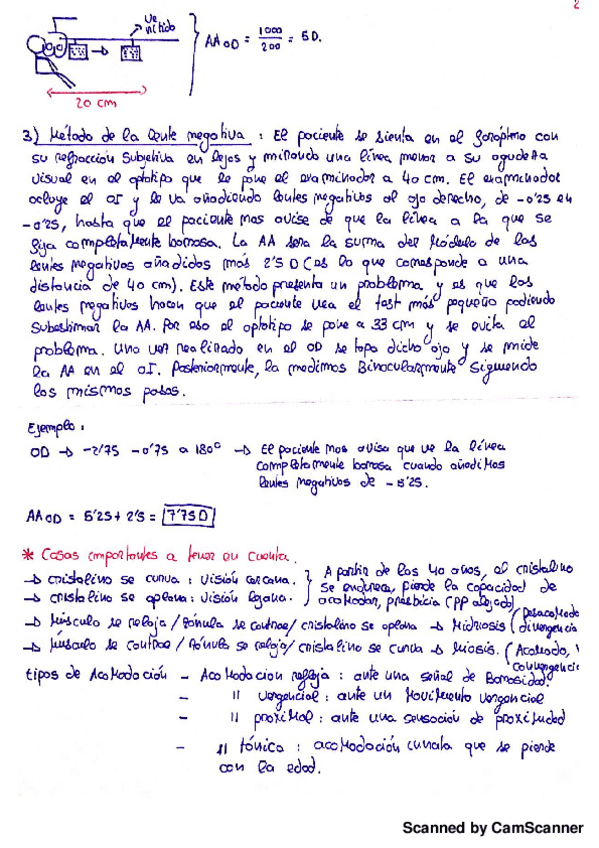 2
Ve
nítido
AA OD = 1000/200 = 5D.
20 cm
3) Método de la lente negativa : El paciente se sienta en el foróptero con
su refracción subjetiva en lejos y mirando una línea menor a su agudeza
visual en el optotipo que le pone el examinador a 40 cm. El examinador
ocluye el OI y le va añadiendo lentes negativas al ojo derecho, de -0'25 en
-0'25, hasta que el paciente nos avise de que la línea a la que se
fija completamente borrosa. La AA será la suma del módulo de las
lentes negativas añadidas más 2'5 D (es lo que corresponde a una
distancia de 40 cm). Este método presenta un problema y es que las
lentes negativas hacen que el paciente vea el test más pequeño pudiendo
subestimar la AA. Por eso el optotipo se pone a 33 cm y se evita el
problema. Una vez realizado en el OD se tapa dicho ojo y se mide
la AA en el OI. Posteriormente, la medimos Binocularmente siguiendo
los mismos pasos.
Ejemplo :
OD → -2'75 -0'75 a 180º → El paciente nos avisa que ve la línea
completamente borrosa cuando añadimos
lentes negativas de -5'25.
AA OD = 5'25 + 2'5 = 7'75 D
* Cosas importantes a tener en cuenta.
→ cristalino se curva : Visión cercana.
→ cristalino se aplana : Visión lejana.
A partir de los 40 años, el cristalino
se endurece, pierde la capacidad de
acomodar, presbicia (PP alejado)
→ Músculo se relaja / zónula se contrae / cristalino se aplana → Midriosis (desacomodo
divergencia
→ Músculo se contrae / zónula se relaja / cristalino se curva → Miosis. (Acomodo, y
convergencia
tipos de Acomodación - Acomodación refleja : ante una señal de Borrosidad.
- " vergencial : ante un Movimiento vergencial
- " proximal : ante una sensación de proximidad
- " tónica : acomodación cuneta que se pierde
con la edad.
Scanned by CamScanner